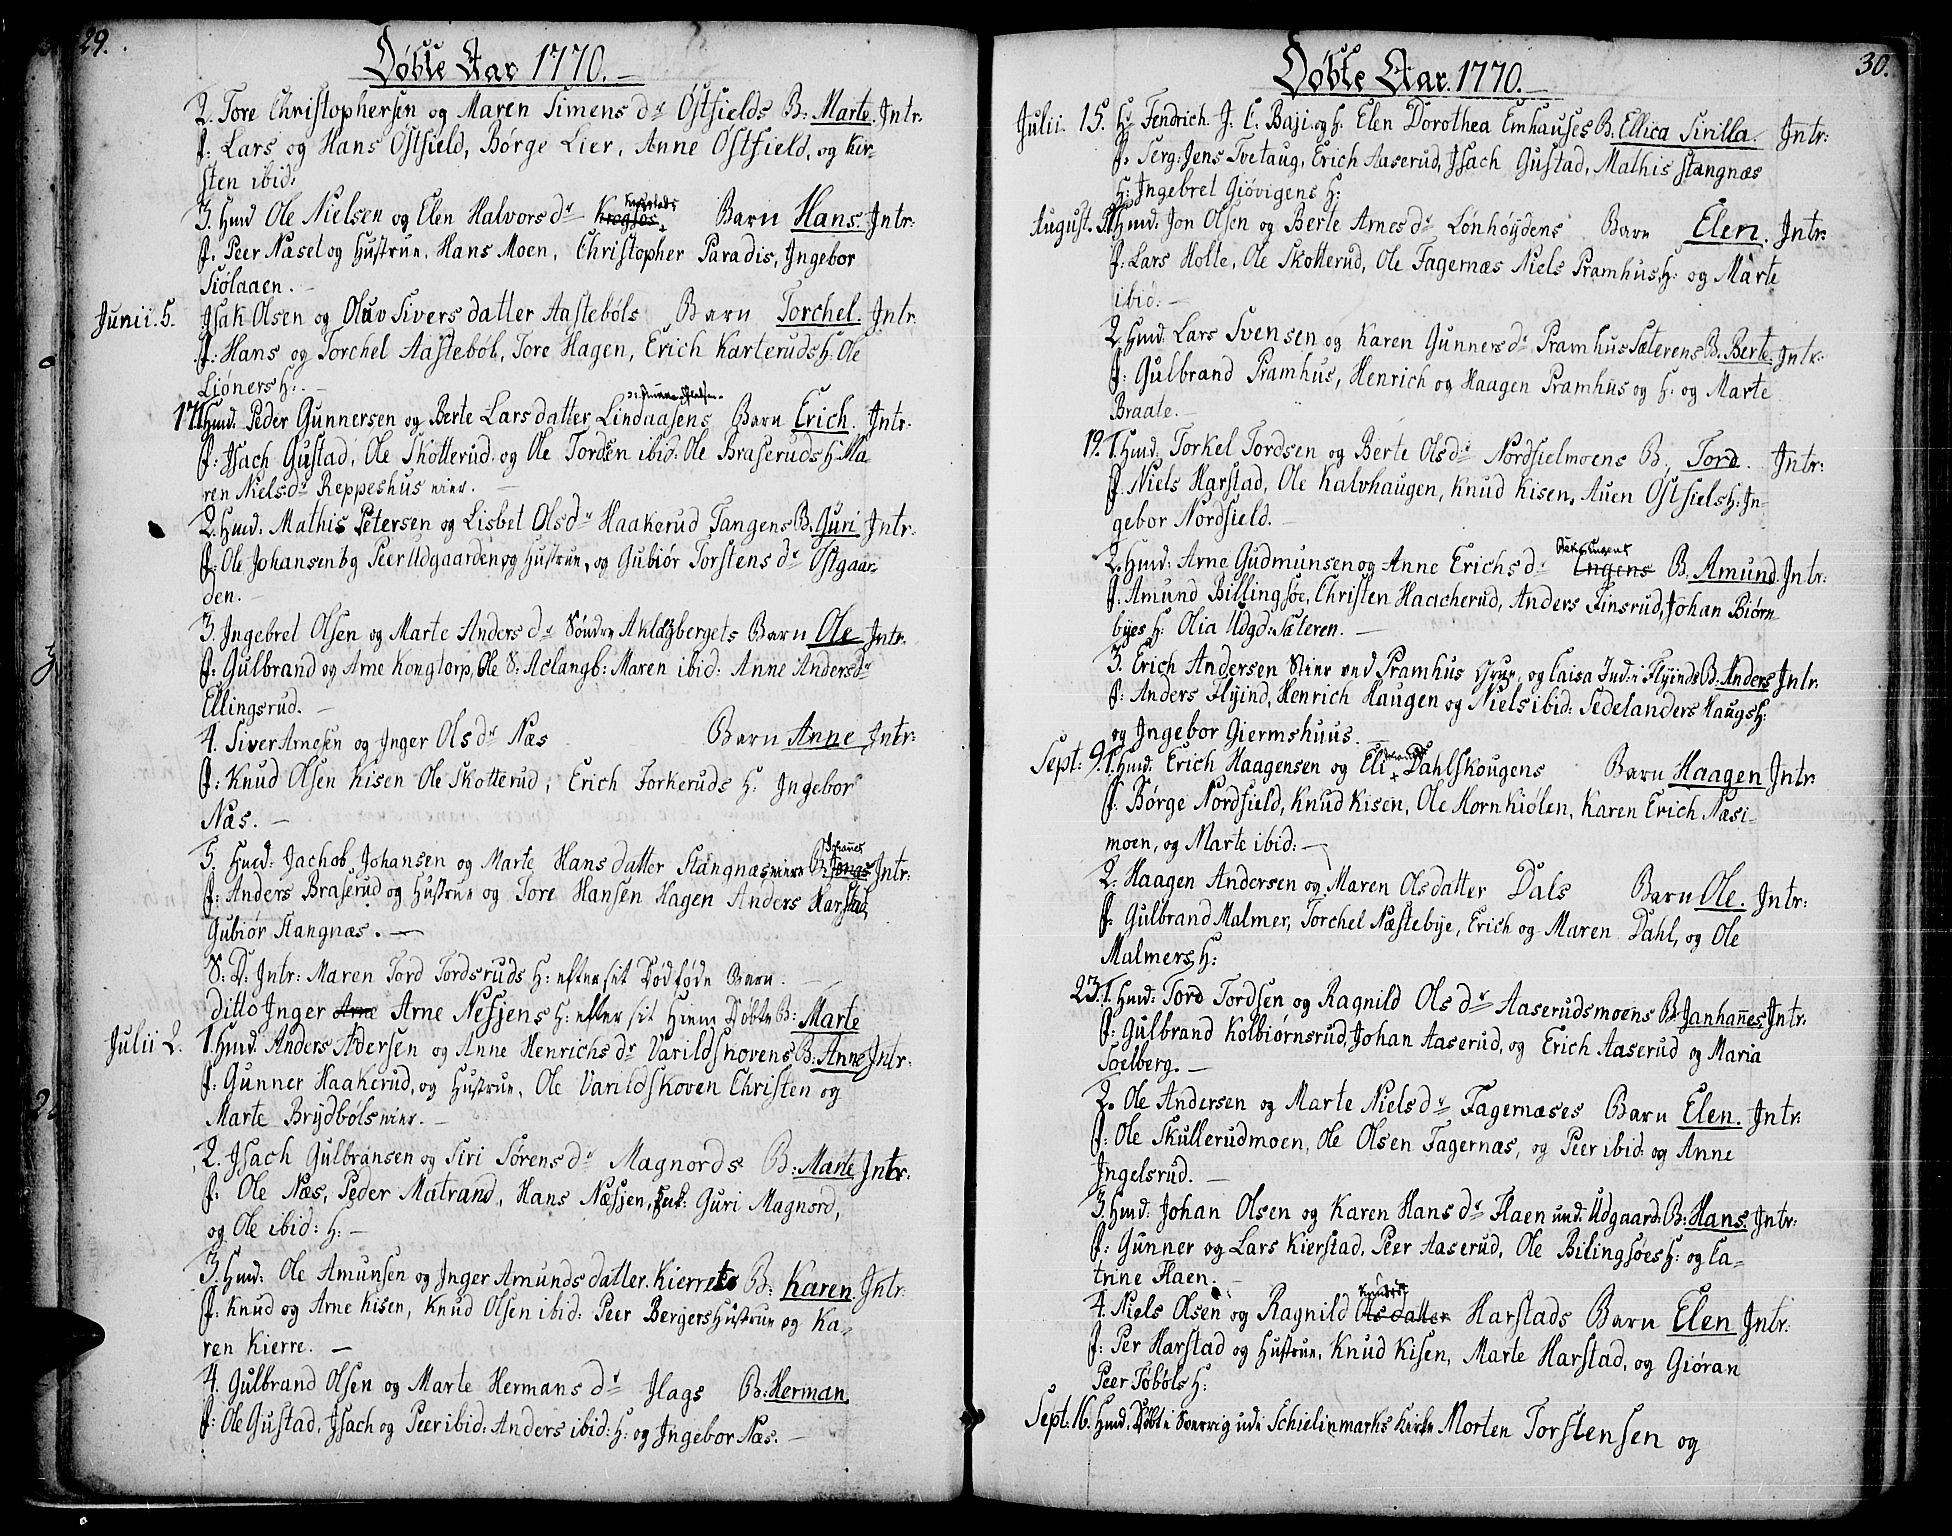 29.
Döbte Aar 1770.
2. Tore Christophersen og Maren Simens dr Östfields B: Marte. Intr.
f: Lars og Hans Östfield, Börge Lier, Anne Östfield, og Kir-
sten ibid:
3. Hmd Ole Nielsen og Elen Halvors dr Barn Hans. Intr:
f. Peer Næset og Hustrue, Hans Moen, Christopher Paradis, Ingebor
Siölaaen.
Junii. 5. Isak Olsen og Oluv Sivers datter Aasteböls Barn Torchel. Intr.
f: Hans og Torchel Aasteböl, Tore Hagen, Erich Karteruds H: Ole
Liöners H:
17. 1. Hmd. Peder Gunnersen og Berte Lars datter Lindaasens Barn Erich. Intr.
f: Isach Gustad, Ole Skotterud og Ole Tordsen ibid: Ole Braseruds H: Ma-
ren Niels dr Reppeshus
2. Hmd. Mathis Petersen og Lisbet Ols dr Haakerud Tangens B. Guri Intr.
f: Ole Johansen og Peer Udgaarden og Hustrue, og Gubiör Torstens dr Östgaar-
den.
3. Ingebret Olsen og Marte Anders dr Söndre Aklangbergets Barn Ole Intr.
f: Gulbrand og Arne Kongtorp, Ole S: Aclangb: Maren ibid: Anne Andersdr
Ellingsrud.
4. Siver Arnesen og Inger Ols dr Næs Barn Anne Intr:
f: Knud Olsen Kisen Ole Skotterud, Erich Torkeruds H: Ingebor
Næs.
5. Hmd: Jachob Johansen og Marte Hans datter Stangnæs B. Johanes Jonas Intr:
f: Anders Braserud og Hustrue og Tore Hansen Hagen Anders Harstad
Gubiör Stangnæs.
S: D: Intr: Maren Tord Tordsruds H: efter sit Dödföde Barn.
ditto Inger Arne Arne Nesjens H: efter sit Hiem Döbte B: Marte
Julii 2. 1. Hmd. Anders Adersen og Anne Henrichs dr Varildskovens B: Anne Intr:
f: Gunner Haakerud, og Hustrue, Ole Varildskoven Christen og
Marte Brydböls
2. Isach Gulbransen og Siri Sörens dr Magnords B: Marte Intr.
f: Ole Næs, Peder Matrand, Hans Næsjen, Guri Magnord,
og Ole ibid: H:
3. Hmd: Ole Amunsen og Inger Amunds datter. Kierrets B: Karen. Intr:
f: Knud og Arne Kisen, Knud Olsen ibid: Peer Bergers Hustrue og Ka-
ren Kierre.
4. Gulbrand Olsen og Marte Hermans dr Ilags B: Herman.
f: Ole Gustad, Isach og Peer ibid: Anders ibid: H: og Ingebor Næs.
30.
Döbte Aar. 1770.
Julii. 15. Hr Fendrich J. C. Baji og H. Elen Dorothea Emhauses B. Ellica Sirilla. Intr:
f. Serg: Jens Tvetaug, Erich Aaserud, Isach Gustad, Mathis Stangnæs
H: Ingebret Giövigens H:
August. 5. 1. Hmd: Jon Olsen og Berte Arnes dr Lönhöydens Barn Elen. Intr:
f: Lars Holte, Ole Skotterud, Ole Fagernæs Niels Pramhus H: og Marte
ibid:
2. Hmd: Lars Svensen og Karen Gunners dr Pramhus Sæterens B. Berte. Intr:
f: Gulbrand Pramhus, Henrich og Haagen Pramhus og H: og Marte
Braate.
19. 1. Hmd: Torkel Tordsen og Berte Ols dr Nordfielmoens B. Tord. Intr:
f. Niels Harstad, Ole Kalvhaugen, Knud Kisen, Auen Östfiels H: In-
gebor Nordfield.
2. Hmd: Arne Gudmunsen og Anne Erichs dr Engens B. Amund. Intr:
f. Amund Billingsöe, Christen Haacherud, Anders Finsrud, Johan Biörn-
byes H: Olia Udgd: Sæteren.
3. Erich Andersen ved Pramhus og Caisa Jud: i Flyinds B: Anders Intr:
f: Anders Flyind, Henrich Haugen og Niels ibid: Sedelanders Haugs H:
og Ingebor Giermshuus.
Sept: 9. 1. Hmd. Erich Haagensen og Eli Dahlskougens Barn Haagen Intr
f. Börge Nordfield, Knud Kisen, Ole Hornkiölen, Karen Erich Næsi-
moen, og Marte ibid:
2. Haagen Andersen og Maren Olsdatter Dals Barn Ole. Intr:
f. Gulbrand Malmer, Torchel Næstebye, Erich og Maren Dahl, og Ole
Malmers H:
23. 1. Hmd: Tord Tordsen og Ragnild Ols dr Aaserudsmoens B. Janhanes Intr:
f: Gulbrand Kolbiörnsrud, Johan Aaserud, og Erich Aaserud og Maria
Soelberg.
2. Ole Andersen og Marte Niels dr Fagernæses Barn Elen. Intr:
f: Ole Skullerudmoen, Ole Olsen Fagernæs, og Peer ibid: og Anne
Ingelsrud.
3. Hmd: Johan Olsen og Karen Hans dr Flaen und: Udgaard: B: Hans. Intr:
f: Gunner og Lars Kierstad, Peer Aaserud, Ole Bilingsöes H: og Ca-
trine Flaen.
4. Niels Olsen og Ragnild Knuds dr Olsdatter Harstads Barn Elen Intr:
f: Per Harstad og Hustrue, Knud Kisen, Marte Harstad, og Giöran
Peer Töböls H:
Sept: 16. Hmd. Döbt i Sverrig udi Schielinmarks Kirke Morten Torstensen og